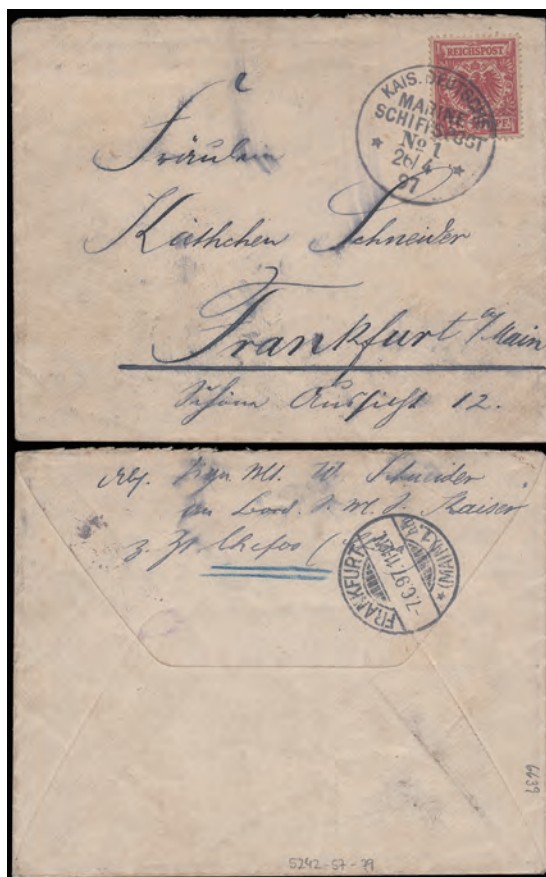 REICHSPOST
KAIS. DEUTSCHE
MARINE
SCHIFFSPOST
No 1
26/4
97
Fräulein
Käthchen Schneider
Frankfurt a/Main
Schöne Aussicht 12.
Abs. W. Schneider
an Bord S. M. S. Kaiser
z. Zt. Chefoo
FRANKFURT
-7.6.97. 11-12V.
(MAIN) * 1.
6639
5242-57-79